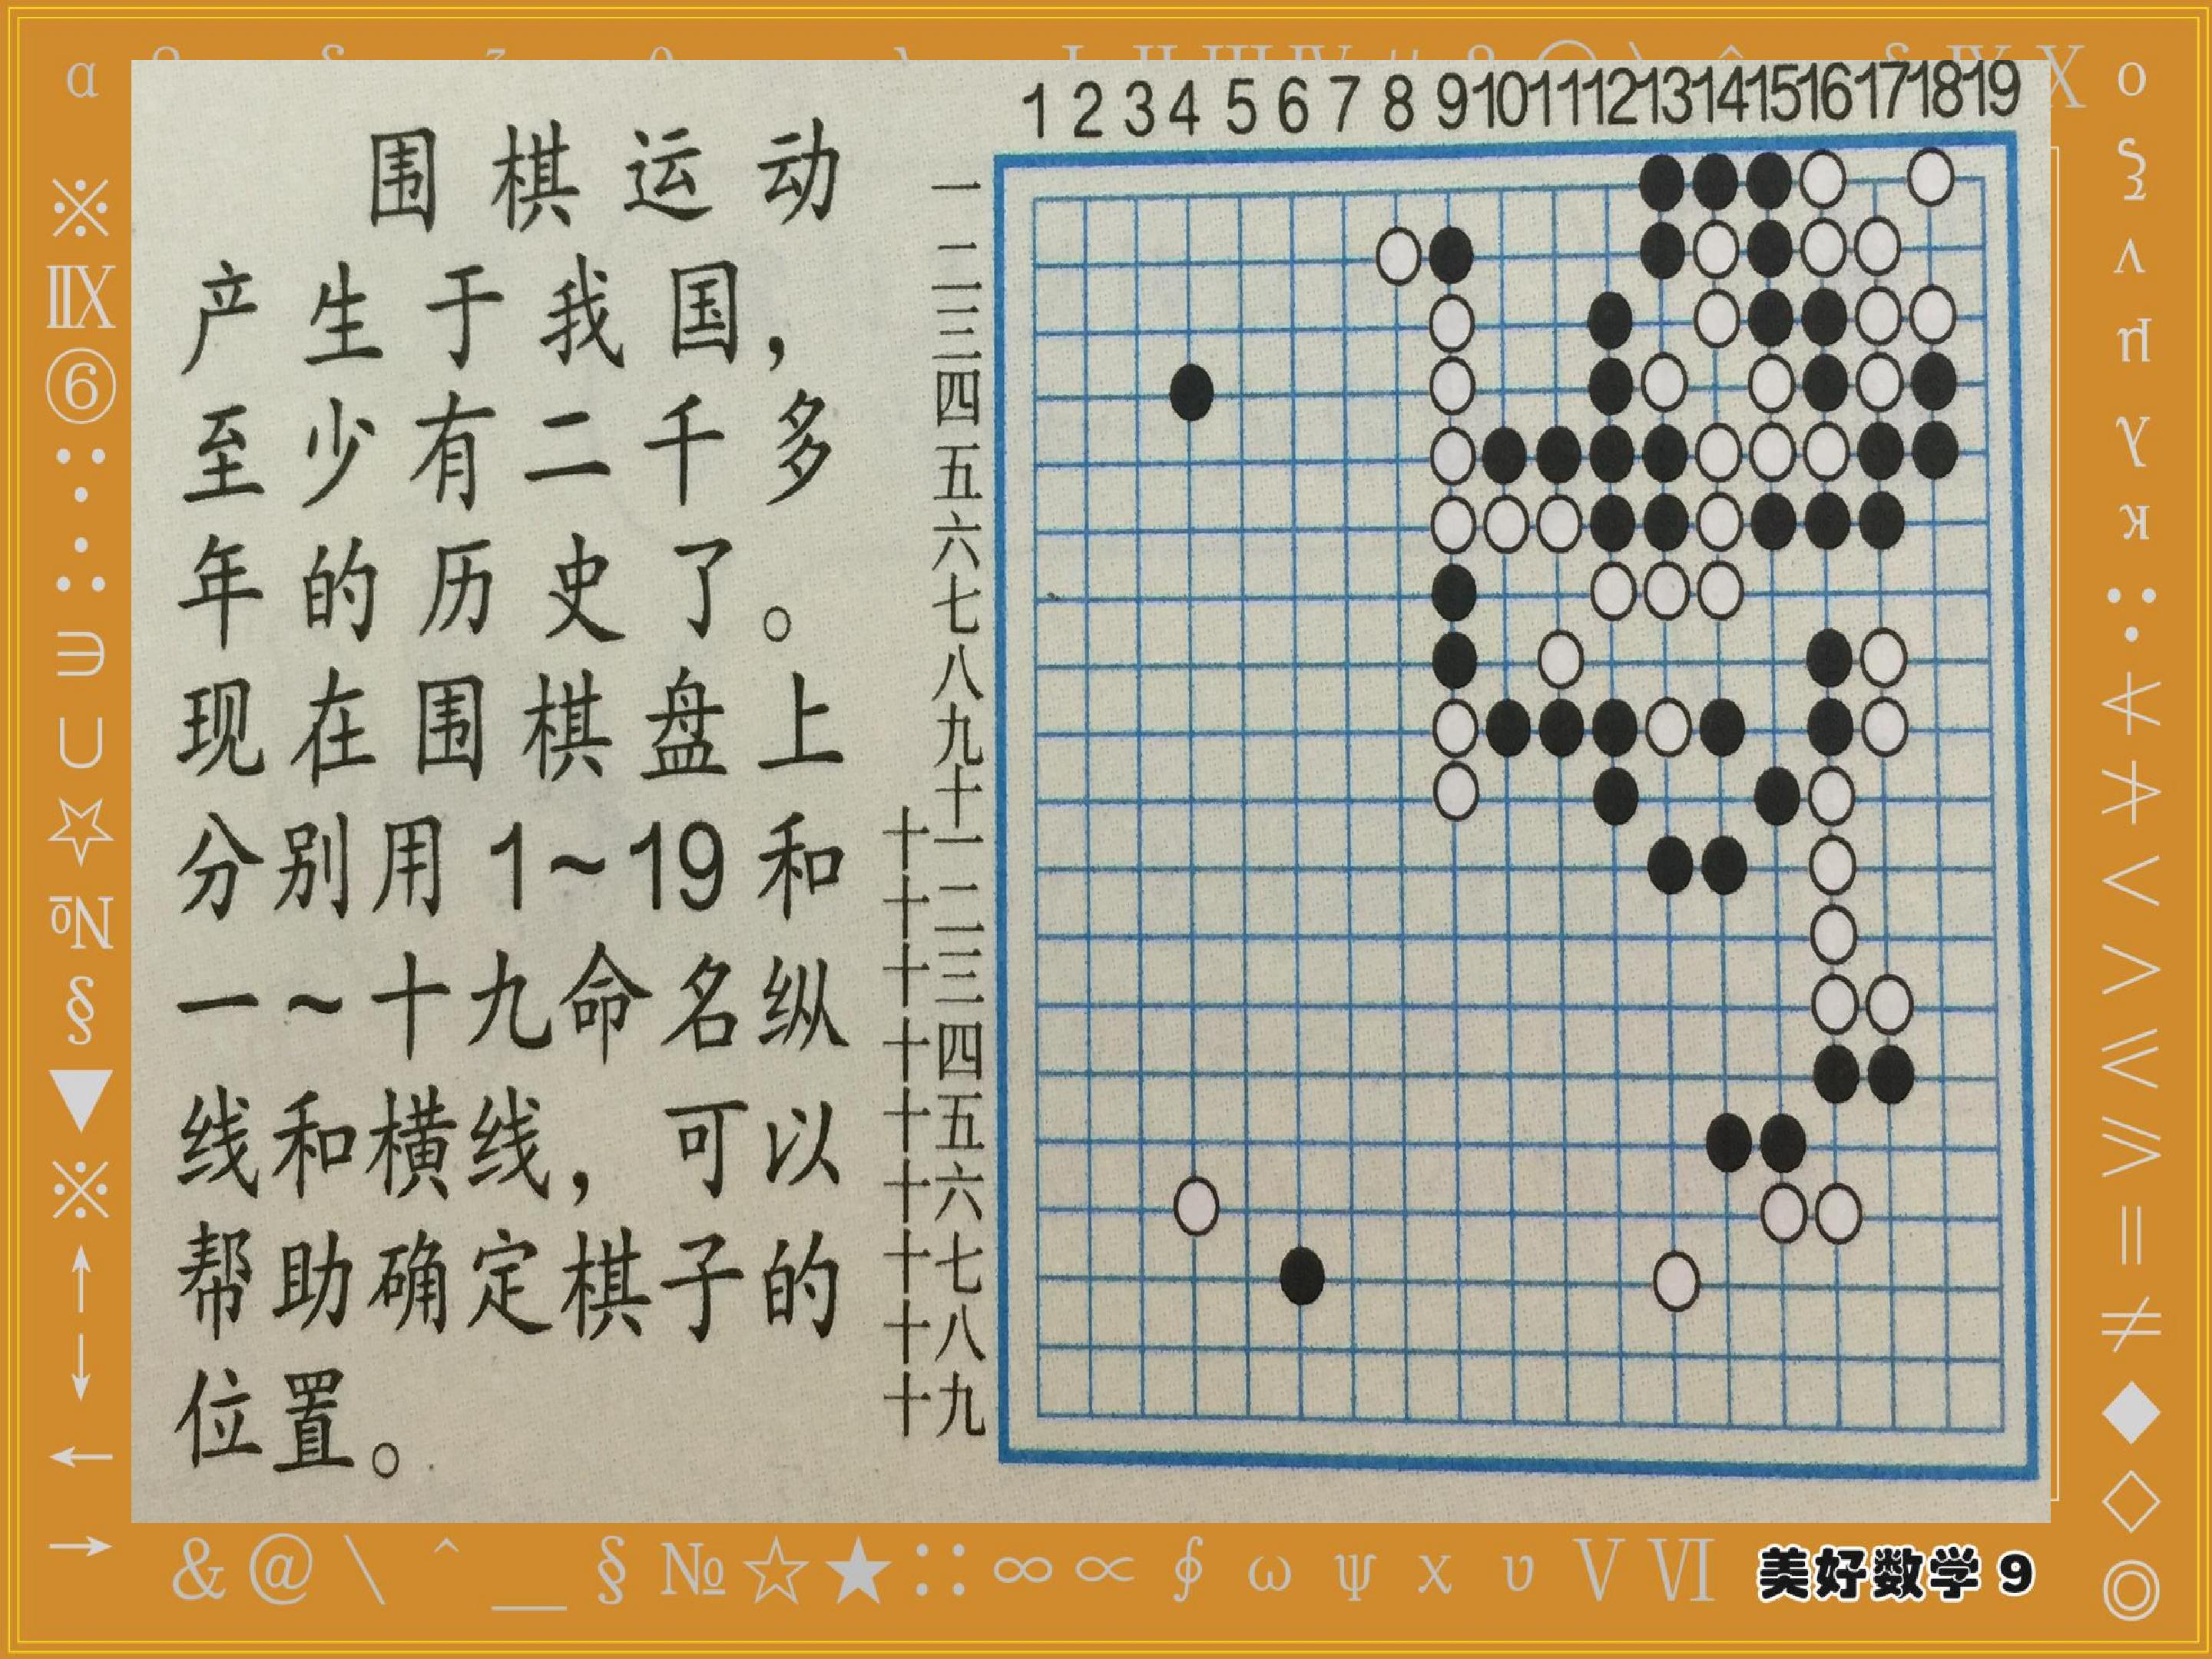 围棋运动
产生于我国，
至少有二千多
年的历史了。
现在围棋盘上
分别用1~19和
一~十九命名纵
线和横线，可以
帮助确定棋子的
位置。
1 2 3 4 5 6 7 8 9 10 11 12 13 14 15 16 17 18 19
一
二
三
四
五
六
七
八
九
十
十一
十二
十三
十四
十五
十六
十七
十八
十九
美好数学 9